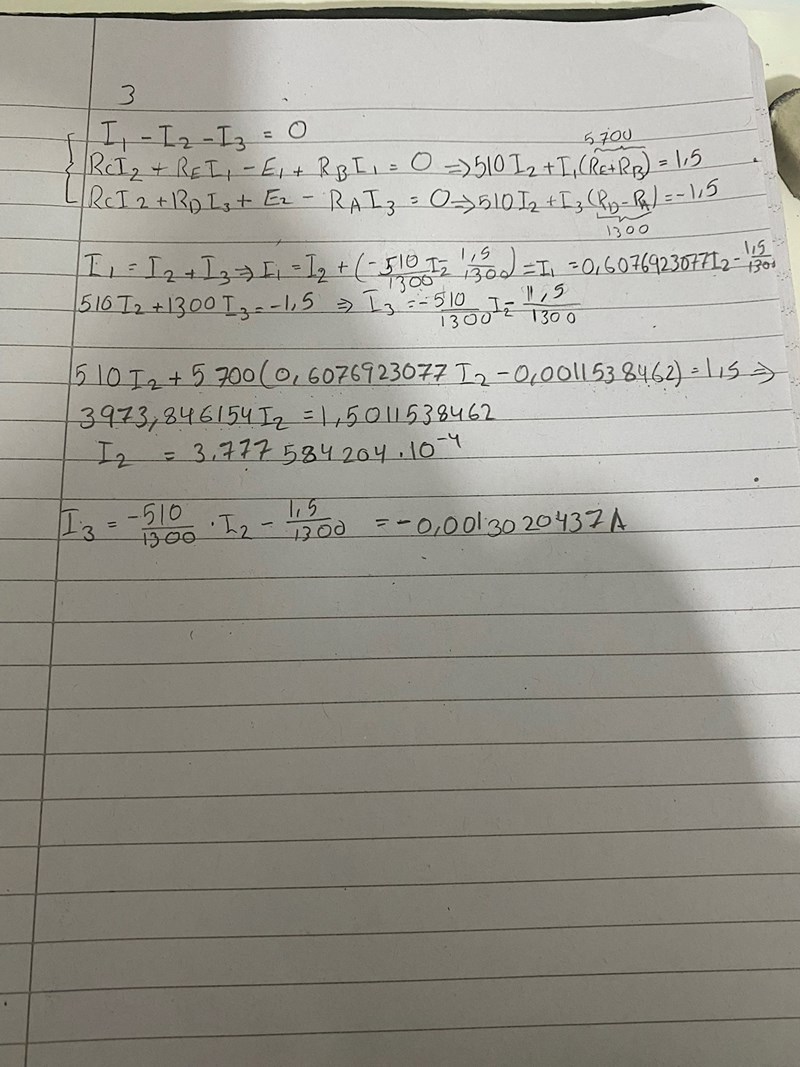 3
I₁ - I₂ - I₃ = 0
5700
RcI₂ + REI₁ - E₁ + RBI₁ = 0 ⇒ 510I₂ + I₁(RE+RB) = 1,5
RcI₂ + RDI₃ + E₂ - RAI₃ = 0 ⇒ 510I₂ + I₃(RD-RA) = -1,5
1300
I₁ = I₂ + I₃ ⇒ I₁ = I₂ + (-510/1300 I₂ - 1,5/1300) = I₁ = 0,6076923077I₂ - 1,5/1300
510I₂ + 1300I₃ = -1,5 ⇒ I₃ = -510/1300 I₂ - 1,5/1300
510I₂ + 5700(0,6076923077I₂ - 0,0011538462) = 1,5 ⇒
3973,846154I₂ = 1,5011538462
I₂ = 3.777584204 · 10⁻⁴
I₃ = -510/1300 · I₂ - 1,5/1300 = -0,0013020437A